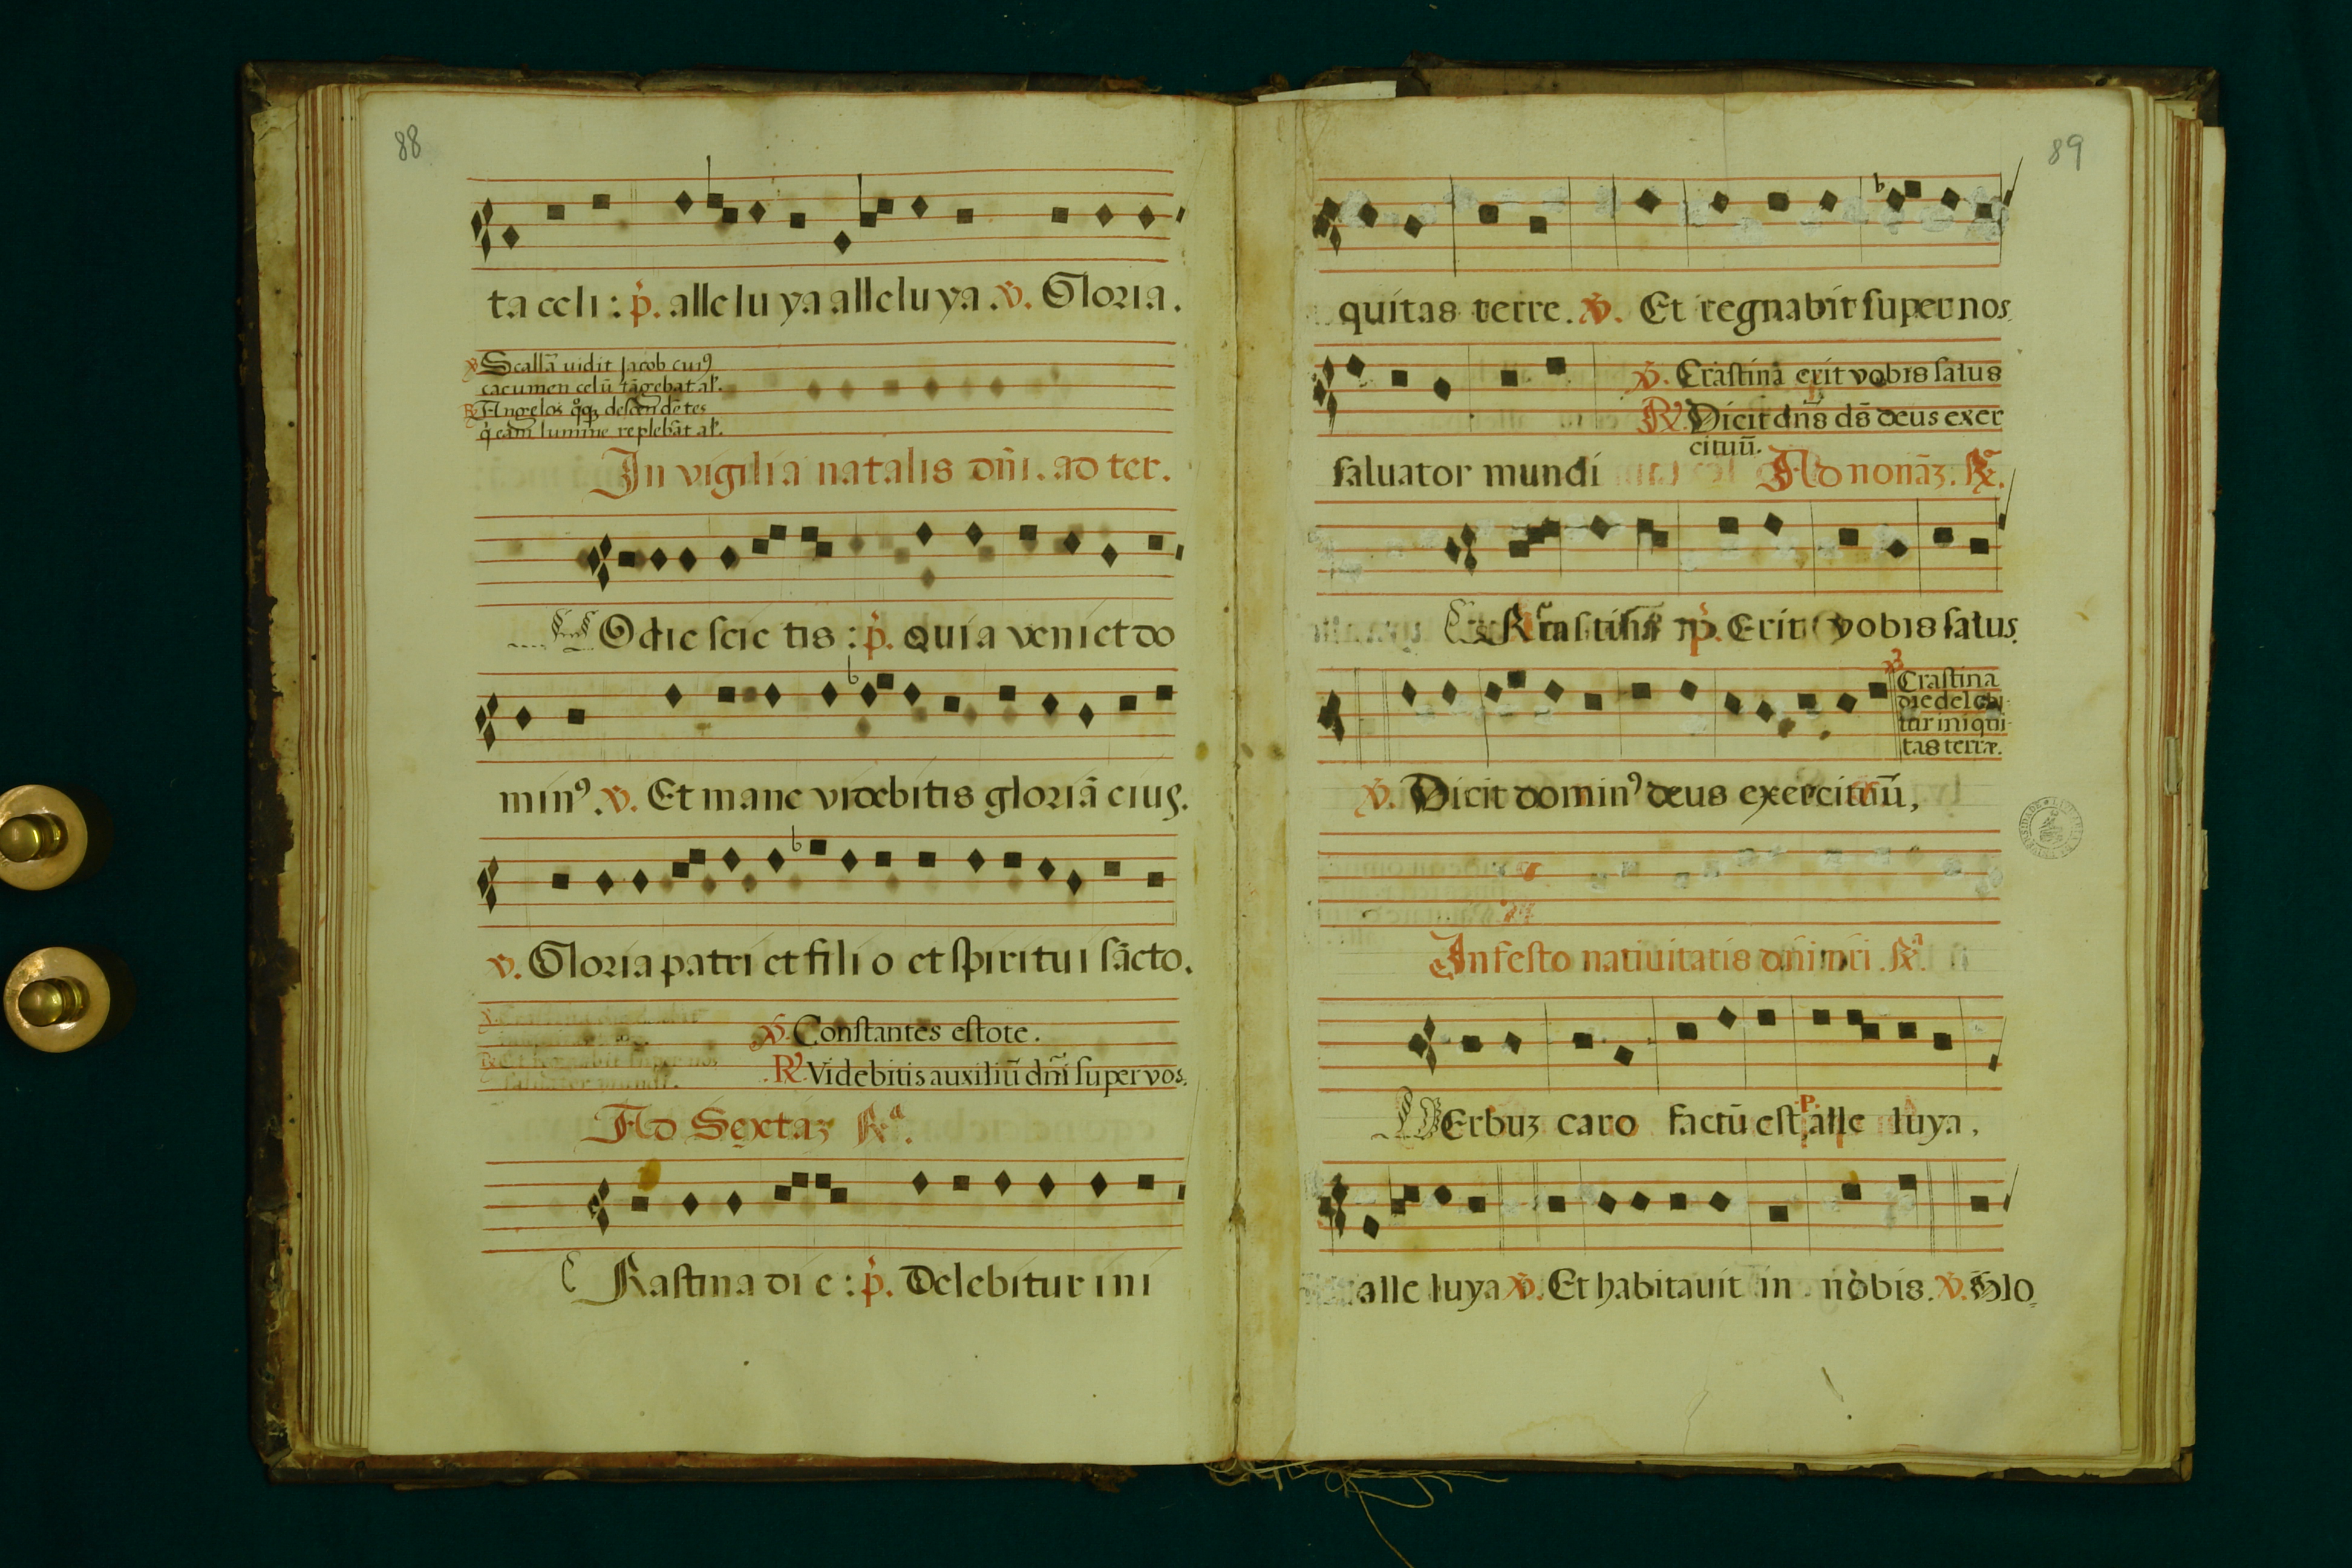 88
ta celi : p. alleluya alleluya . v. Gloria .
v Scallã uidit Jacob cuiꝰ
cacumen celũ tãgebat al'.
R Angelos qͦqꝫ descendẽtes
In vigilia natalis dñi . ad ter .
Odie scie tis : p. Quia veniet do
minꝰ . v. Et mane videbitis gloriã eius .
v. Gloria patri et filio et spiritui sãcto .
v. Constantes estote .
R. Videbitis auxiliũ dñi super vos .
Ad Sextaꝫ Ra .
C Rastina di e : p. Delebitur ini
89
quitas terre . v. Et regnabit super nos
v. Crastina erit vobis salus
R. Dicit dñs ds̃ deus exer
cituũ .
saluator mundi Ad nonãꝫ . R.
p. Erit vobis salus .
Crastina
die delebi-
tur iniqui-
tas terræ .
v. Dicit dominꝰ deus exercituũ ,
In festo natiuitatis dñi nri . R.
VErbuꝫ caro factũ est , P. alle luya ,
alle luya v. Et habitauit in nobis . v. Glo